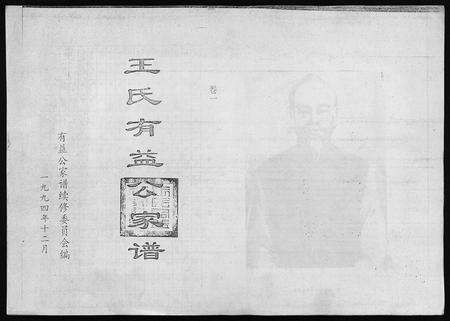 卷一
王氏有益公家谱
有益公家谱续修委员会编
一九九四年十二月